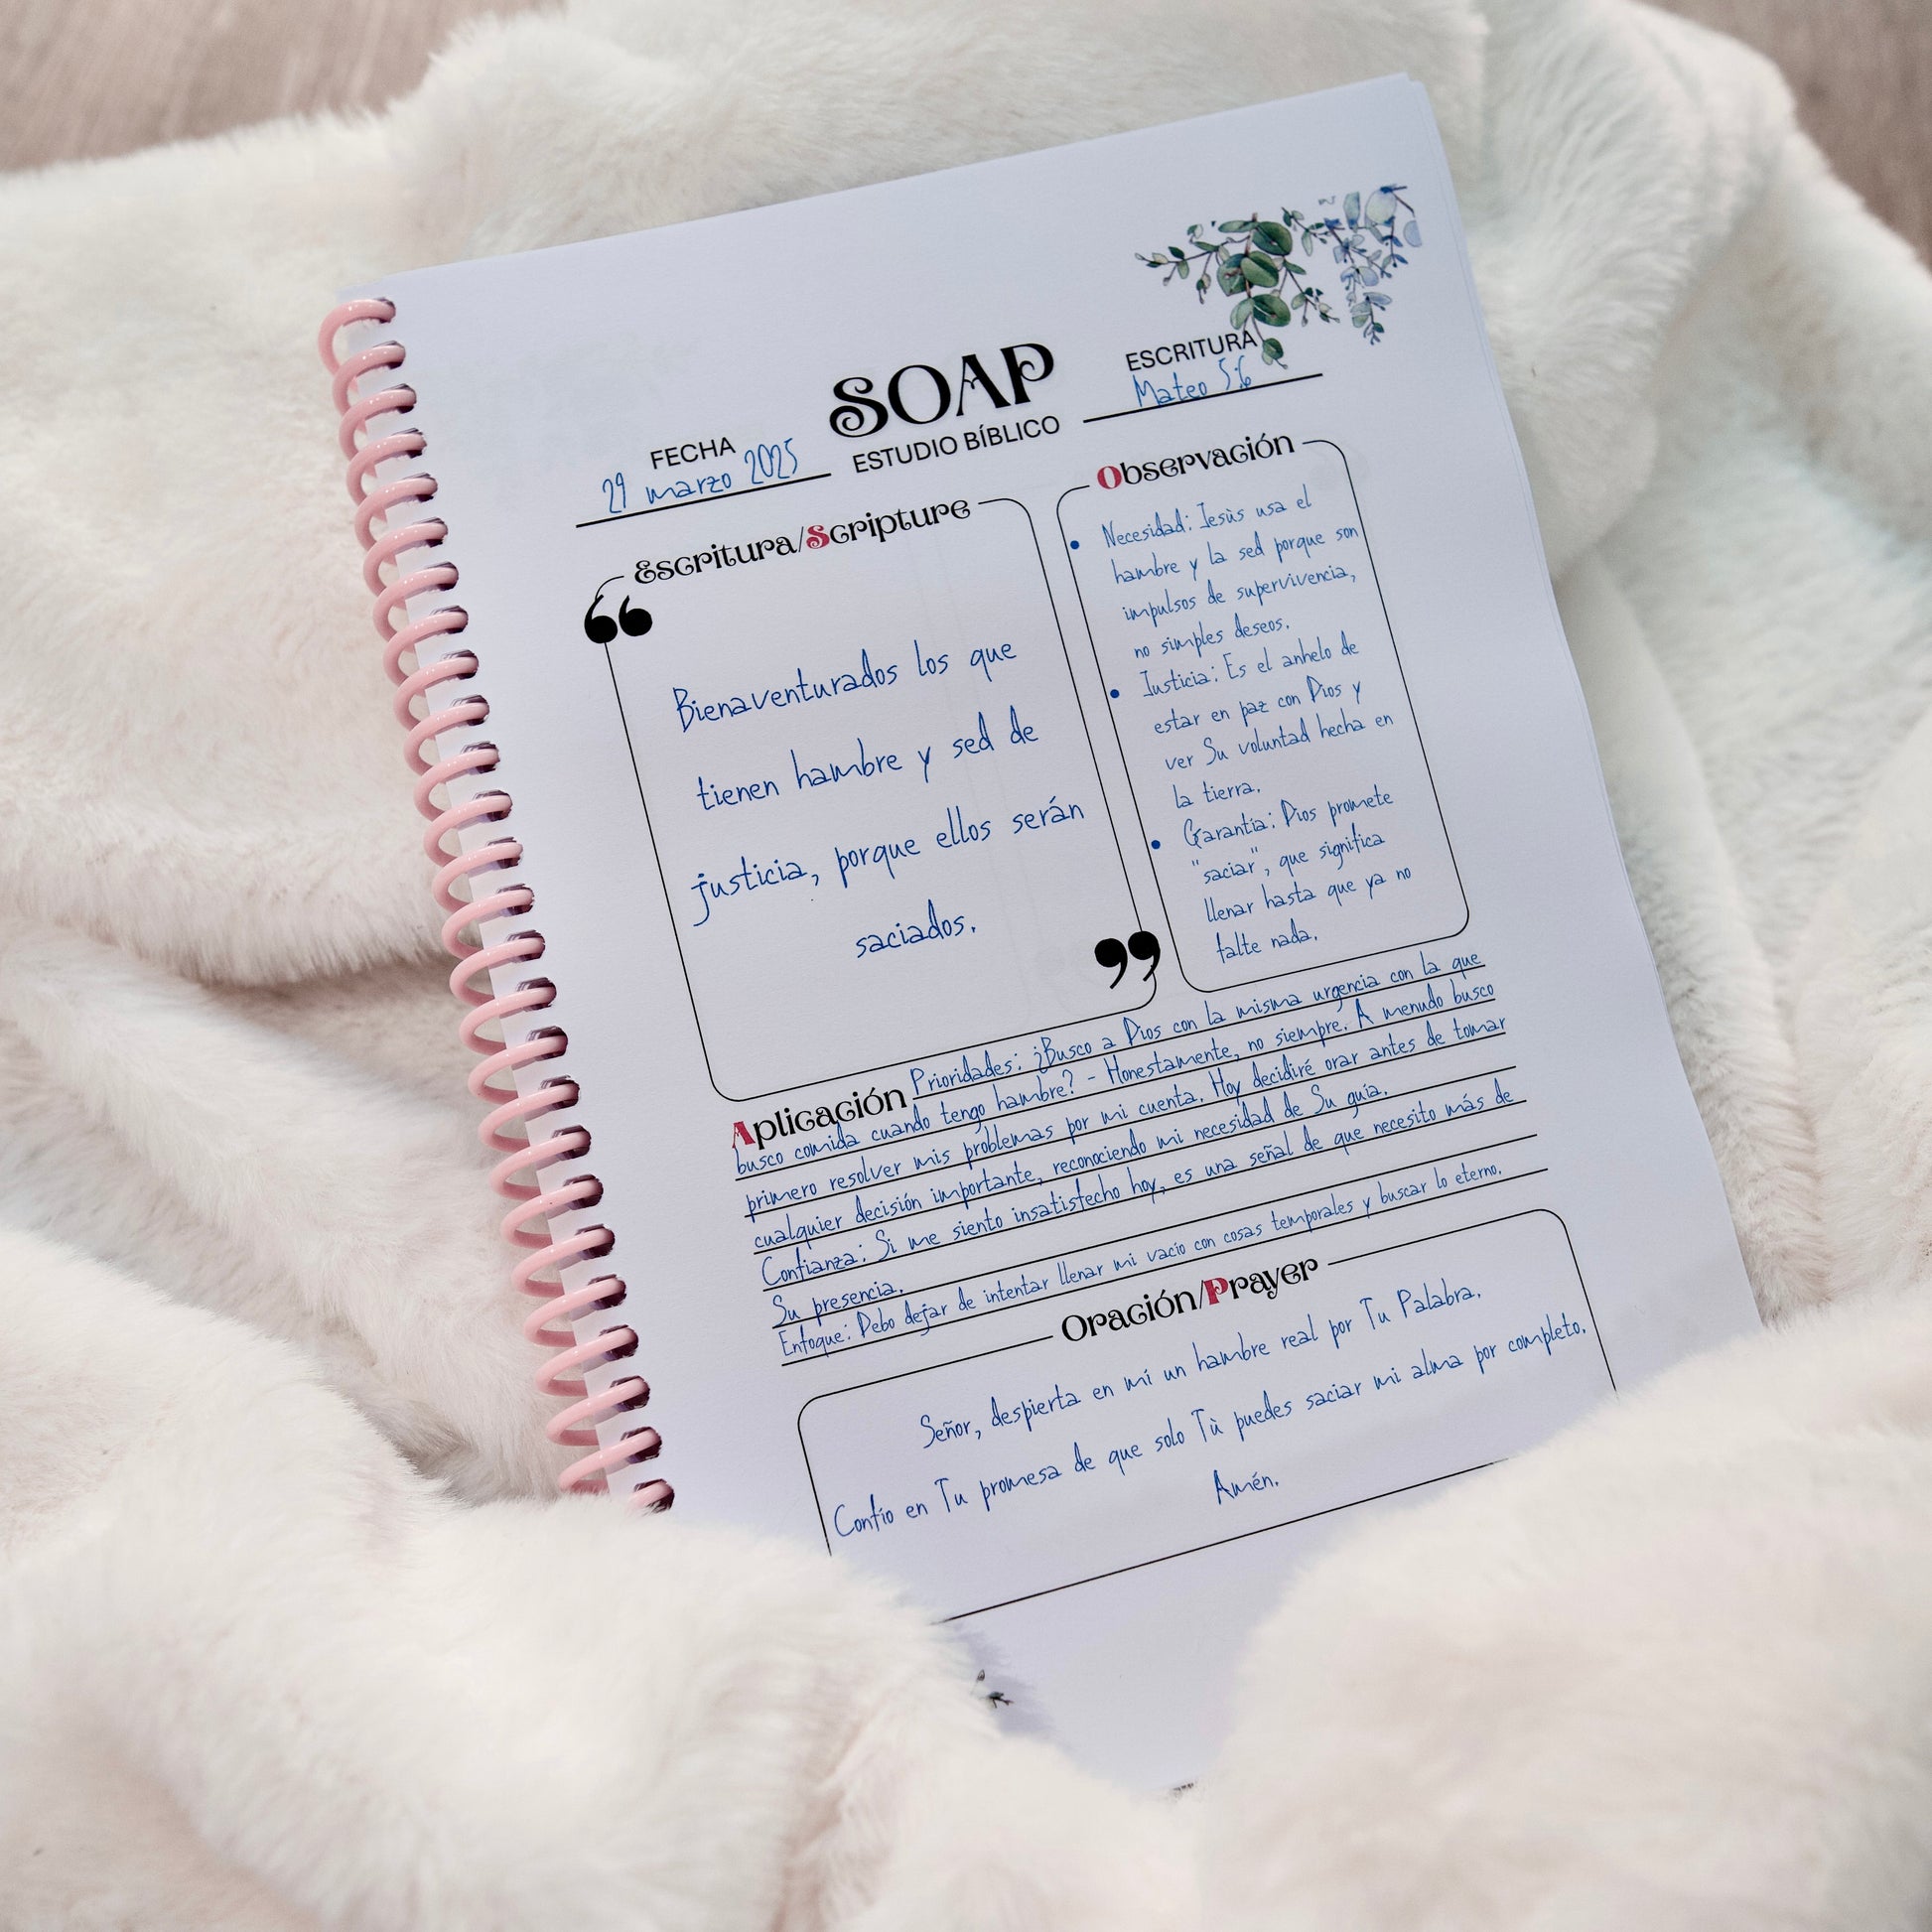 SOAP
ESTUDIO BÍBLICO
FECHA
29 marzo 2025
ESCRITURA
Mateo 5:6
Escritura/Scripture
“
Bienaventurados los que
tienen hambre y sed de
justicia, porque ellos serán
saciados.
”
Observación
• Necesidad: Jesùs usa el
hambre y la sed porque son
impulsos de supervivencia,
no simples deseos.
• Justicia: Es el anhelo de
estar en paz con Dios y
ver Su voluntad hecha en
la tierra.
• Garantía: Dios promete
"saciar", que significa
llenar hasta que ya no
falte nada.
Aplicación Prioridades: ¿Busco a Dios con la misma urgencia con la que
busco comida cuando tengo hambre? - Honestamente, no siempre. A menudo busco
primero resolver mis problemas por mi cuenta. Hoy decidiré orar antes de tomar
cualquier decisión importante, reconociendo mi necesidad de Su guía.
Confianza: Si me siento insatisfecho hoy, es una señal de que necesito más de
Su presencia.
Enfoque: Debo dejar de intentar llenar mi vacío con cosas temporales y buscar lo eterno.
Oración/Prayer
Señor, despierta en mí un hambre real por Tu Palabra.
Confío en Tu promesa de que solo Tù puedes saciar mi alma por completo.
Amén.